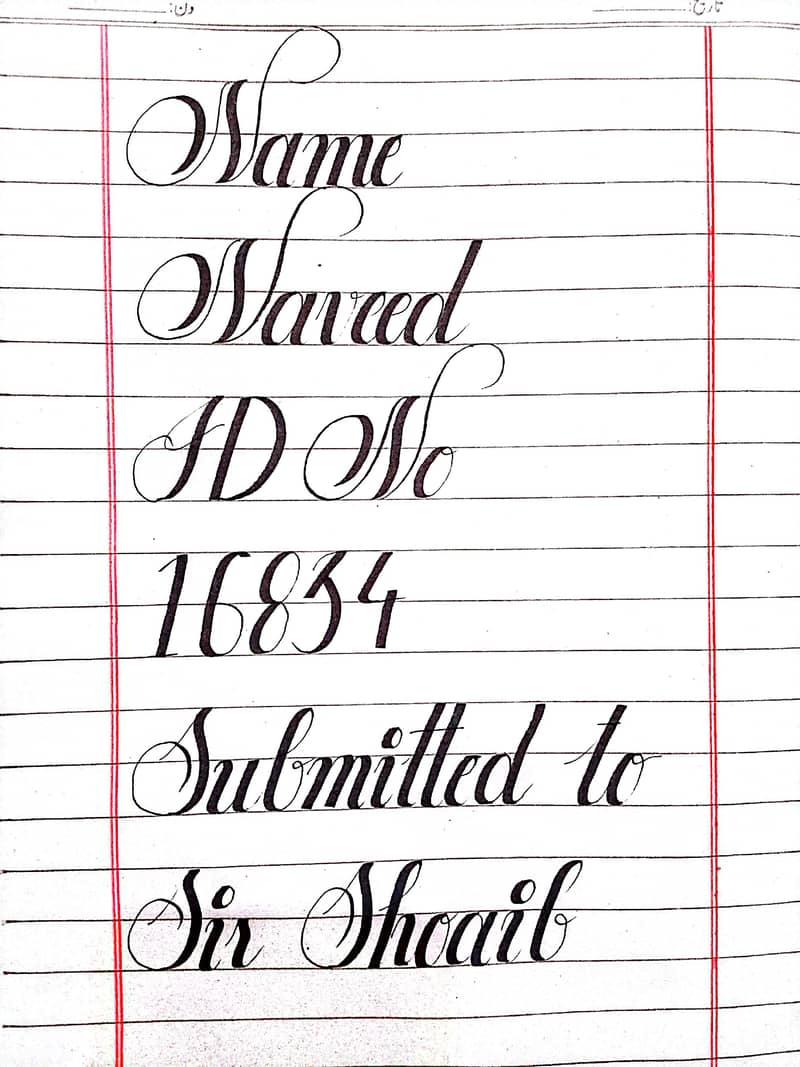 دن: تاریخ:
Name
Naveed
ID No
16834
Submitted to
Sir Shoaib